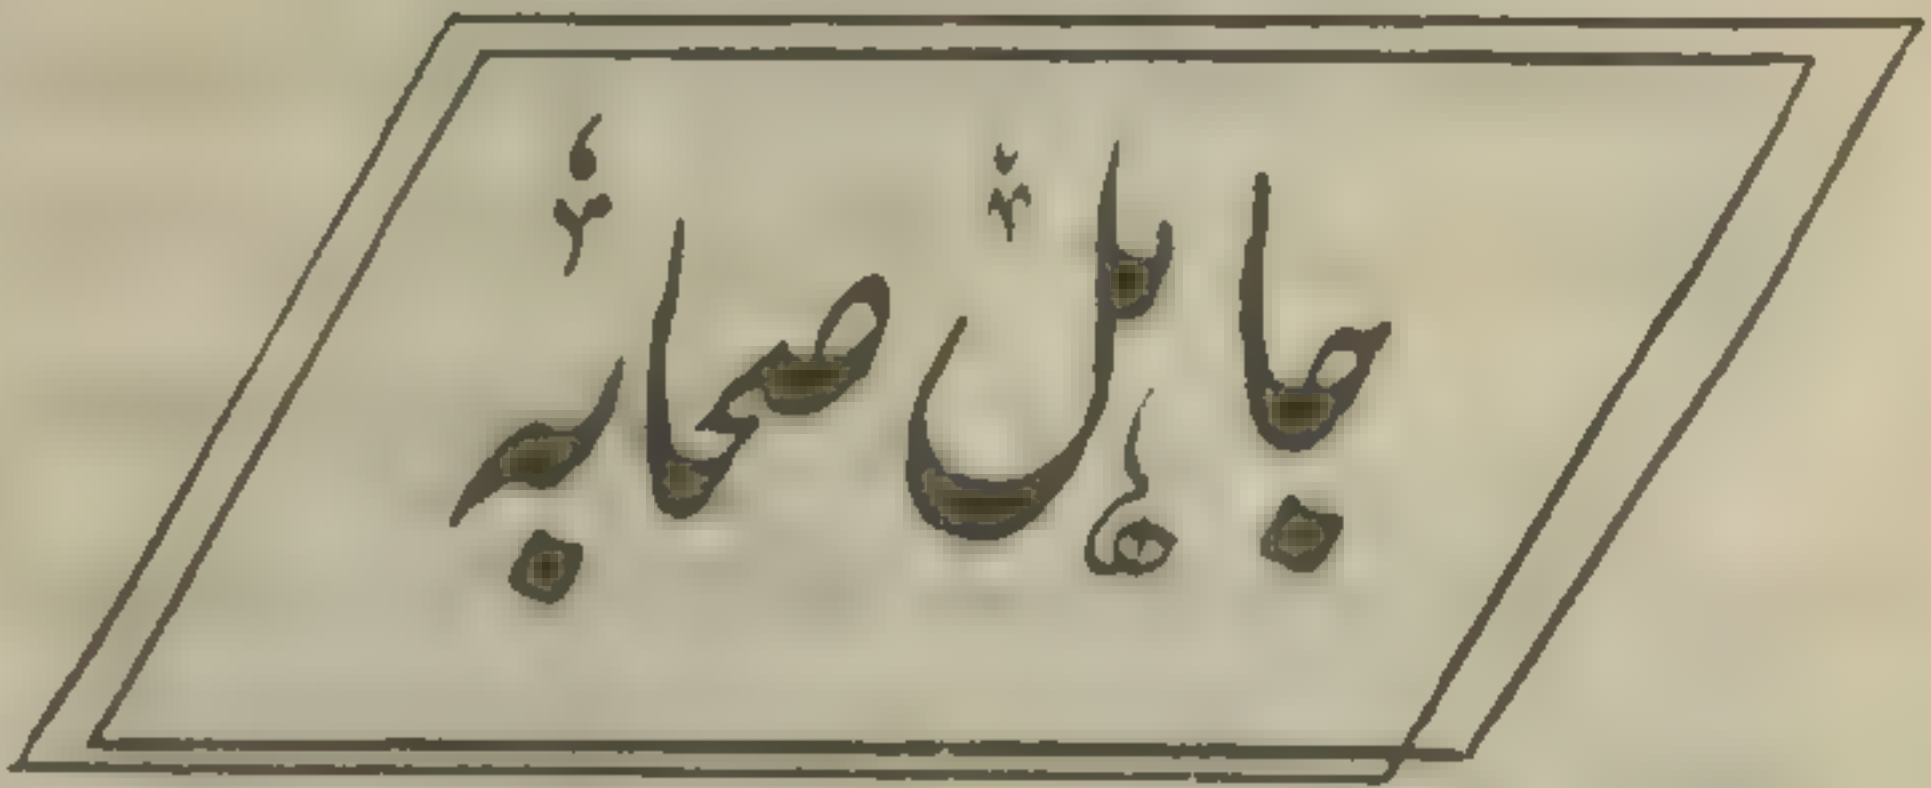 جاہل صحابہ